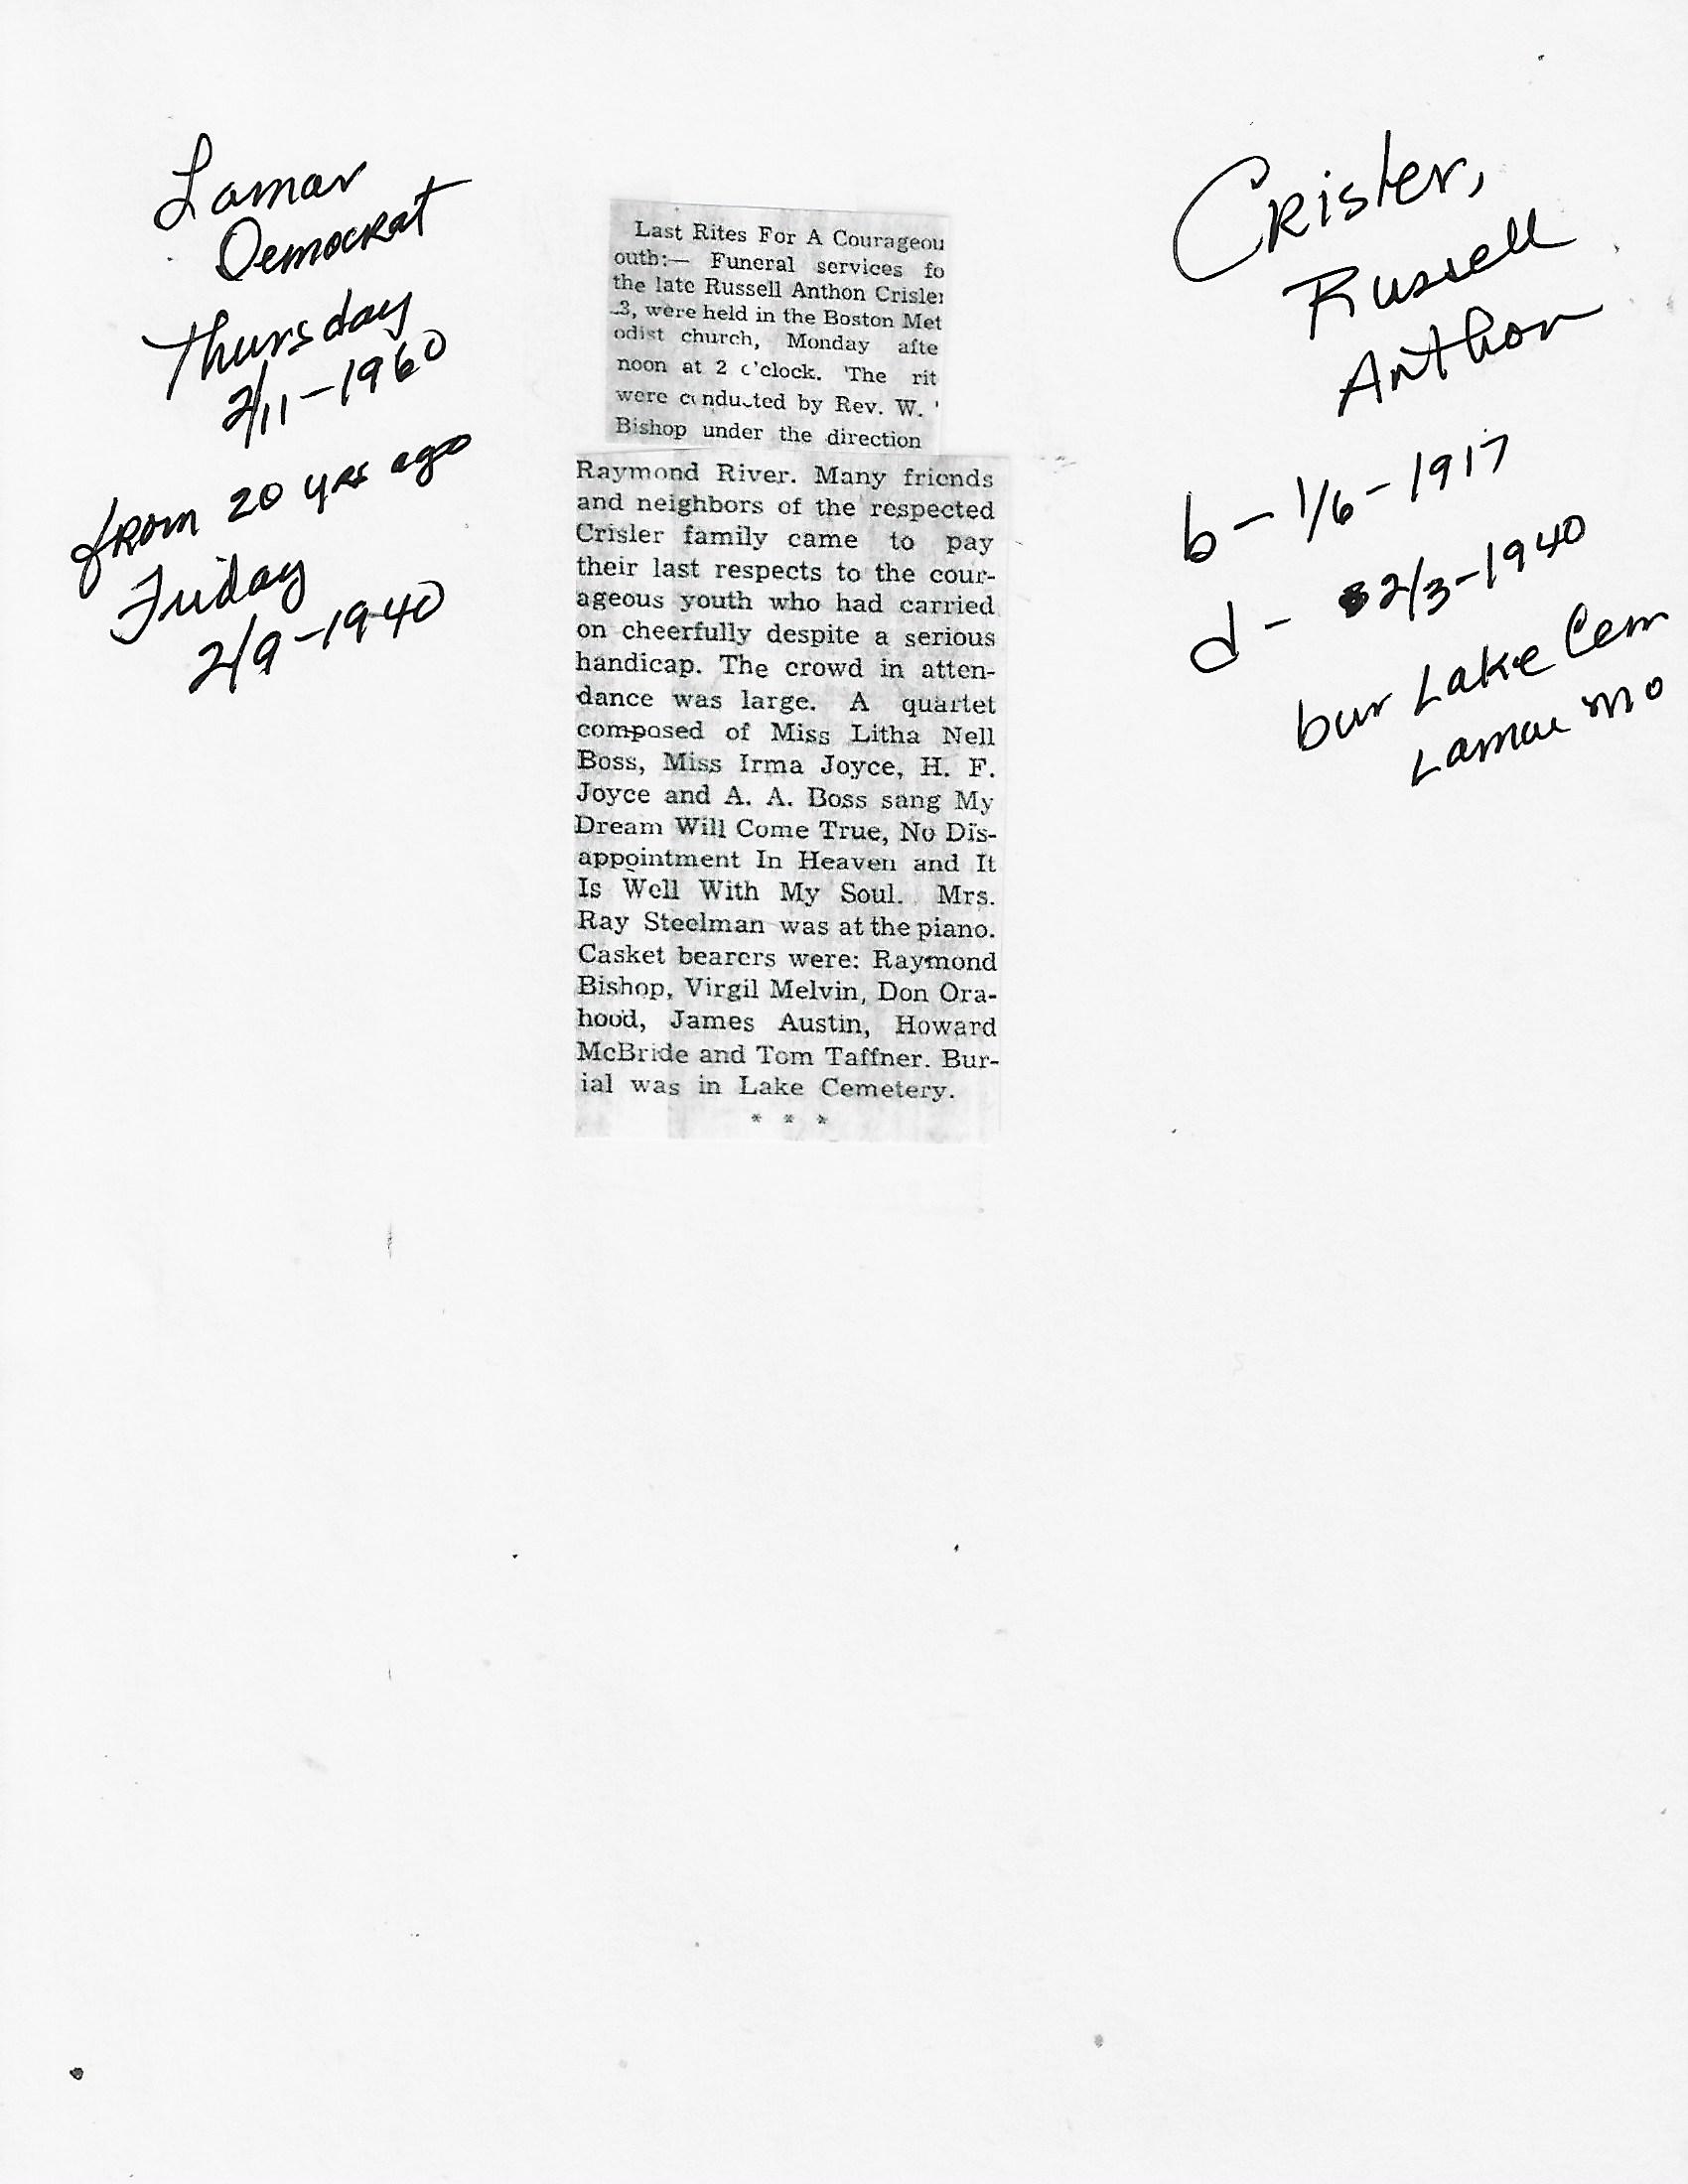 Lamar
Democrat
Thursday
2/11-1960
from 20 yrs ago
Friday
2/9-1940
Last Rites For A Courageou
outh:— Funeral services fo
the late Russell Anthon Crisler
3, were held in the Boston Met
odist church, Monday afte
noon at 2 o'clock. The rit
were conducted by Rev. W.
Bishop under the direction
Raymond River. Many friends
and neighbors of the respected
Crisler family came to pay
their last respects to the cour-
ageous youth who had carried
on cheerfully despite a serious
handicap. The crowd in atten-
dance was large. A quartet
composed of Miss Litha Nell
Boss, Miss Irma Joyce, H. F.
Joyce and A. A. Boss sang My
Dream Will Come True, No Dis-
appointment In Heaven and It
Is Well With My Soul. Mrs.
Ray Steelman was at the piano.
Casket bearers were: Raymond
Bishop, Virgil Melvin, Don Ora-
hood, James Austin, Howard
McBride and Tom Taffner. Bur-
ial was in Lake Cemetery.
* * *
Crisler,
Russell
Anthon
b - 1/6-1917
d - 2/3-1940
bur Lake Cem
Lamar Mo